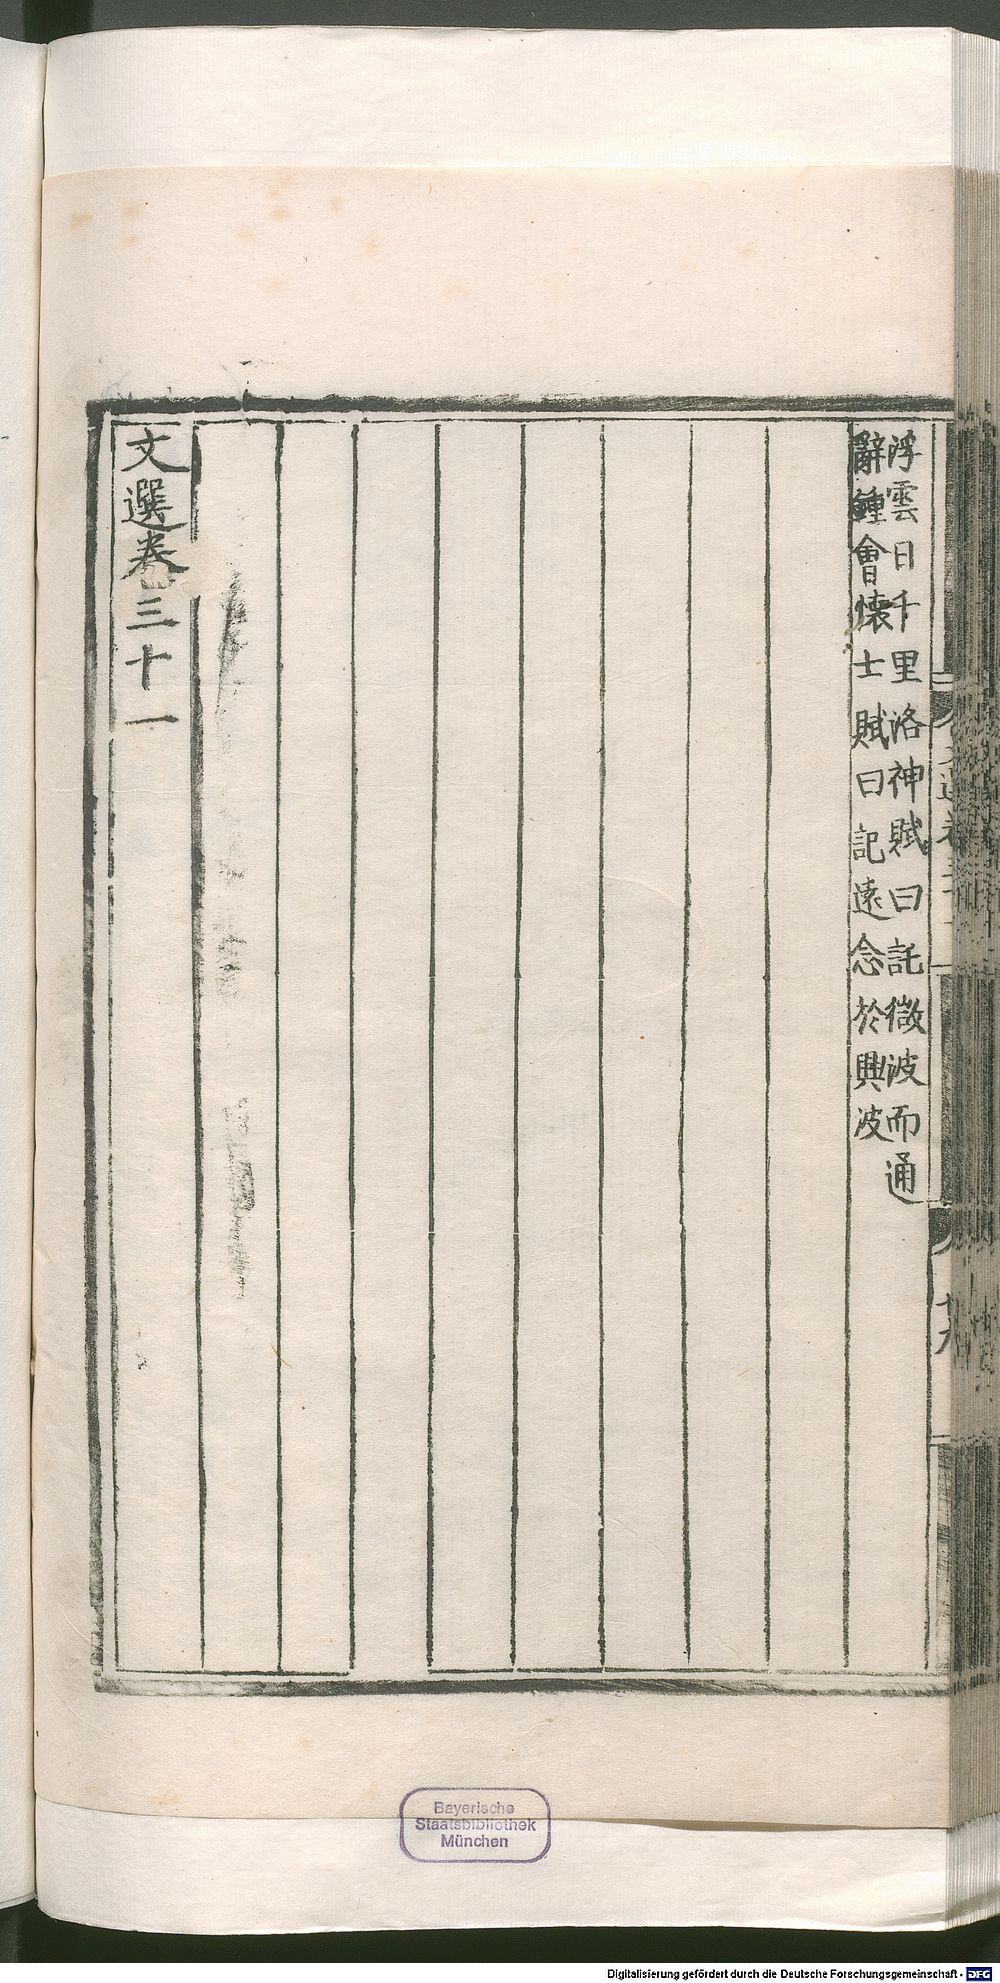 浮雲日千里洛神賦曰託微波而通
辭鍾會懐士賦曰記遠念於興波
文選卷三十一
Bayerische
Staatsbibliothek
München
Digitalisierung gefördert durch die Deutsche Forschungsgemeinschaft - DFG